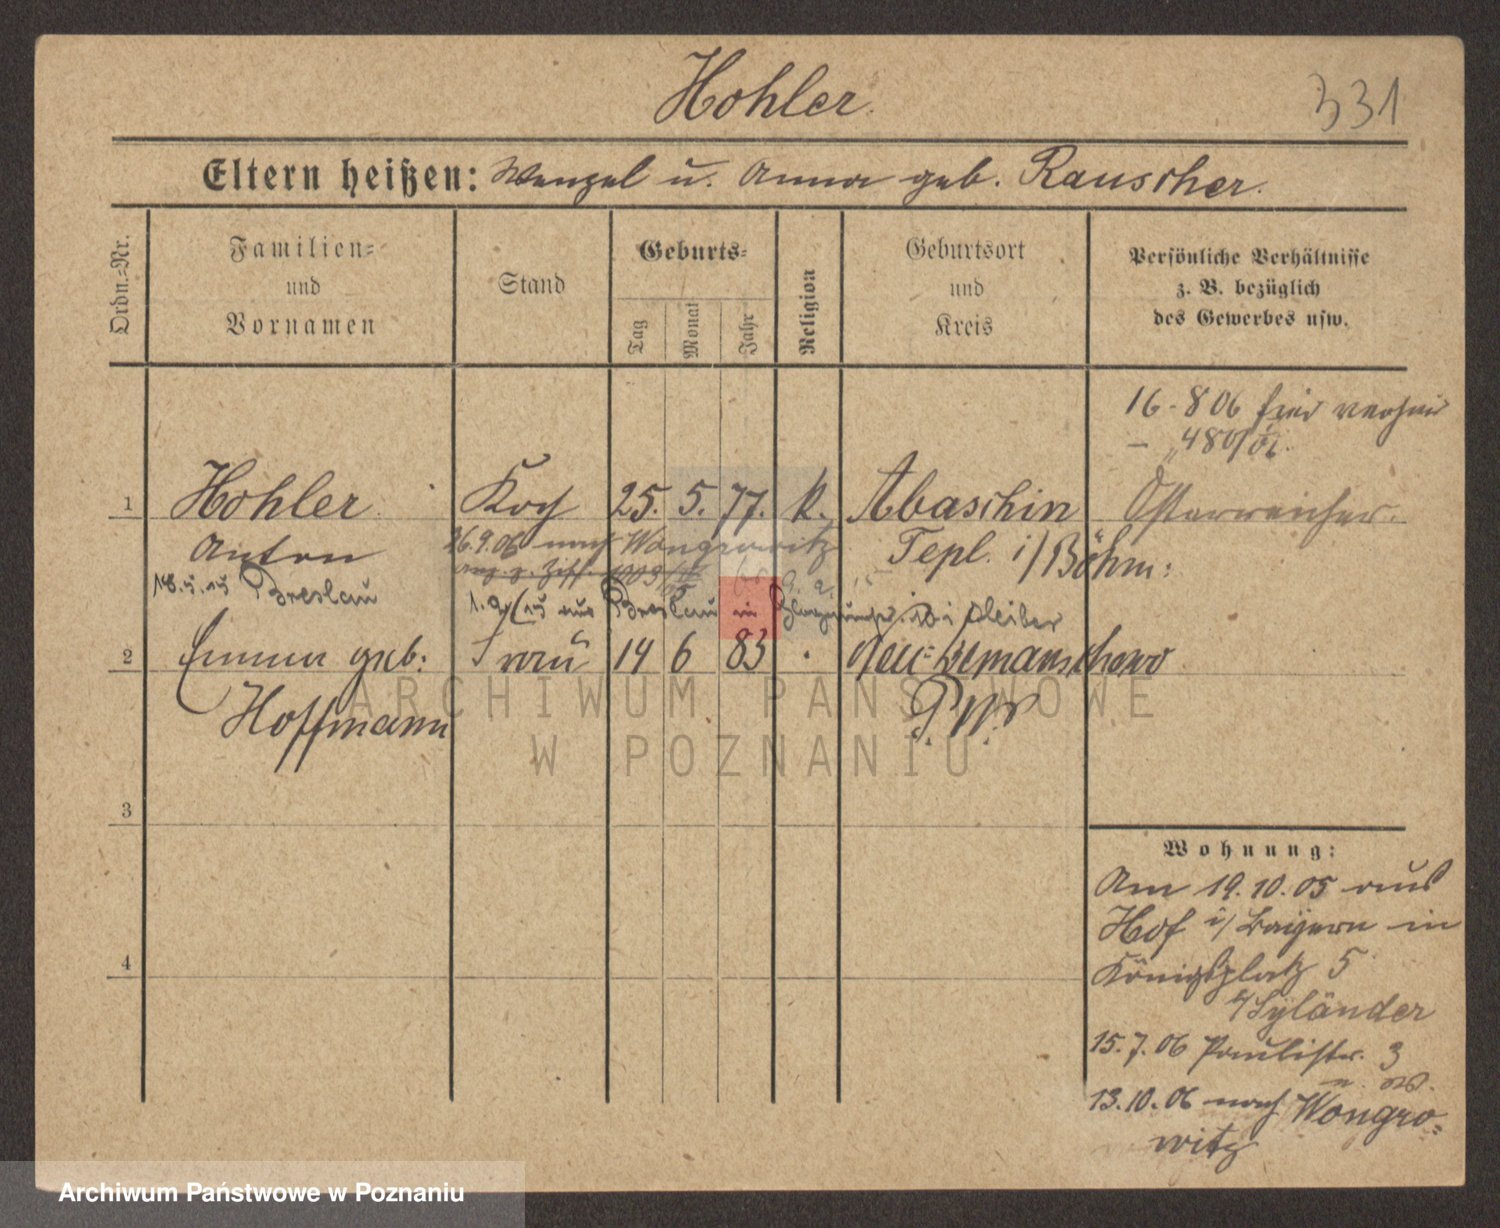 Hohler.
331
Eltern heißen: Wenzel u. Anna geb. Rauscher.
Ordn.=Nr.
Familien=
und
Vornamen
Stand
Geburts=
Tag
Monat
Jahr
Religion
Geburtsort
und
Kreis
Persönliche Verhältnisse
z. B. bezüglich
des Gewerbes usw.
16.8 06
1 Hohler Koch 25. 5. 77. k. Abaschin Österreicher.
Anton 26.9.06 nach Wongrowitz Tepl. i/Böhm:
18.5.15 Breslau
1.9/15 aus Breslau in
2 Emma geb: Frau 14 6 83 .
Hoffmann
3
4
Wohnung:
Am 19.10.05 aus
Hof i/Bayern in
Königsplatz 5
b/Syländer
15.7.06 Paulistr. 3
13.10.06 nach Wongro=
witz
ARCHIWUM PAŃSTWOWE
W POZNANIU
Archiwum Państwowe w Poznaniu